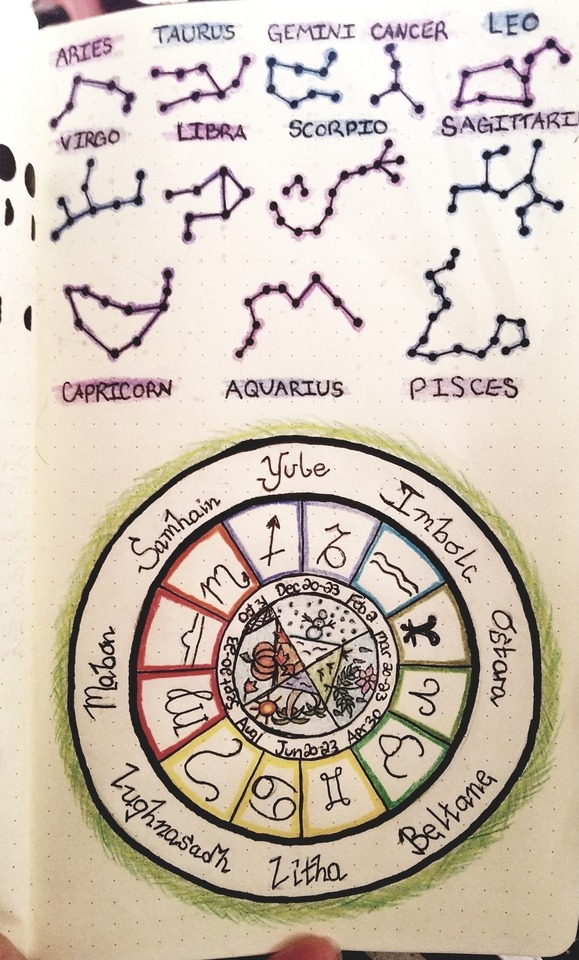 ARIES TAURUS GEMINI CANCER LEO
VIRGO LIBRA SCORPIO SAGITTARI
CAPRICORN AQUARIUS PISCES
Yule
Imbolc
Ostara
Beltane
Litha
Lughnasadh
Mabon
Samhain
Dec 20-23
Feb 2
Mar 20-23
Apr 30
Jun 20-23
Aug 1
Sept 20-23
Oct 31